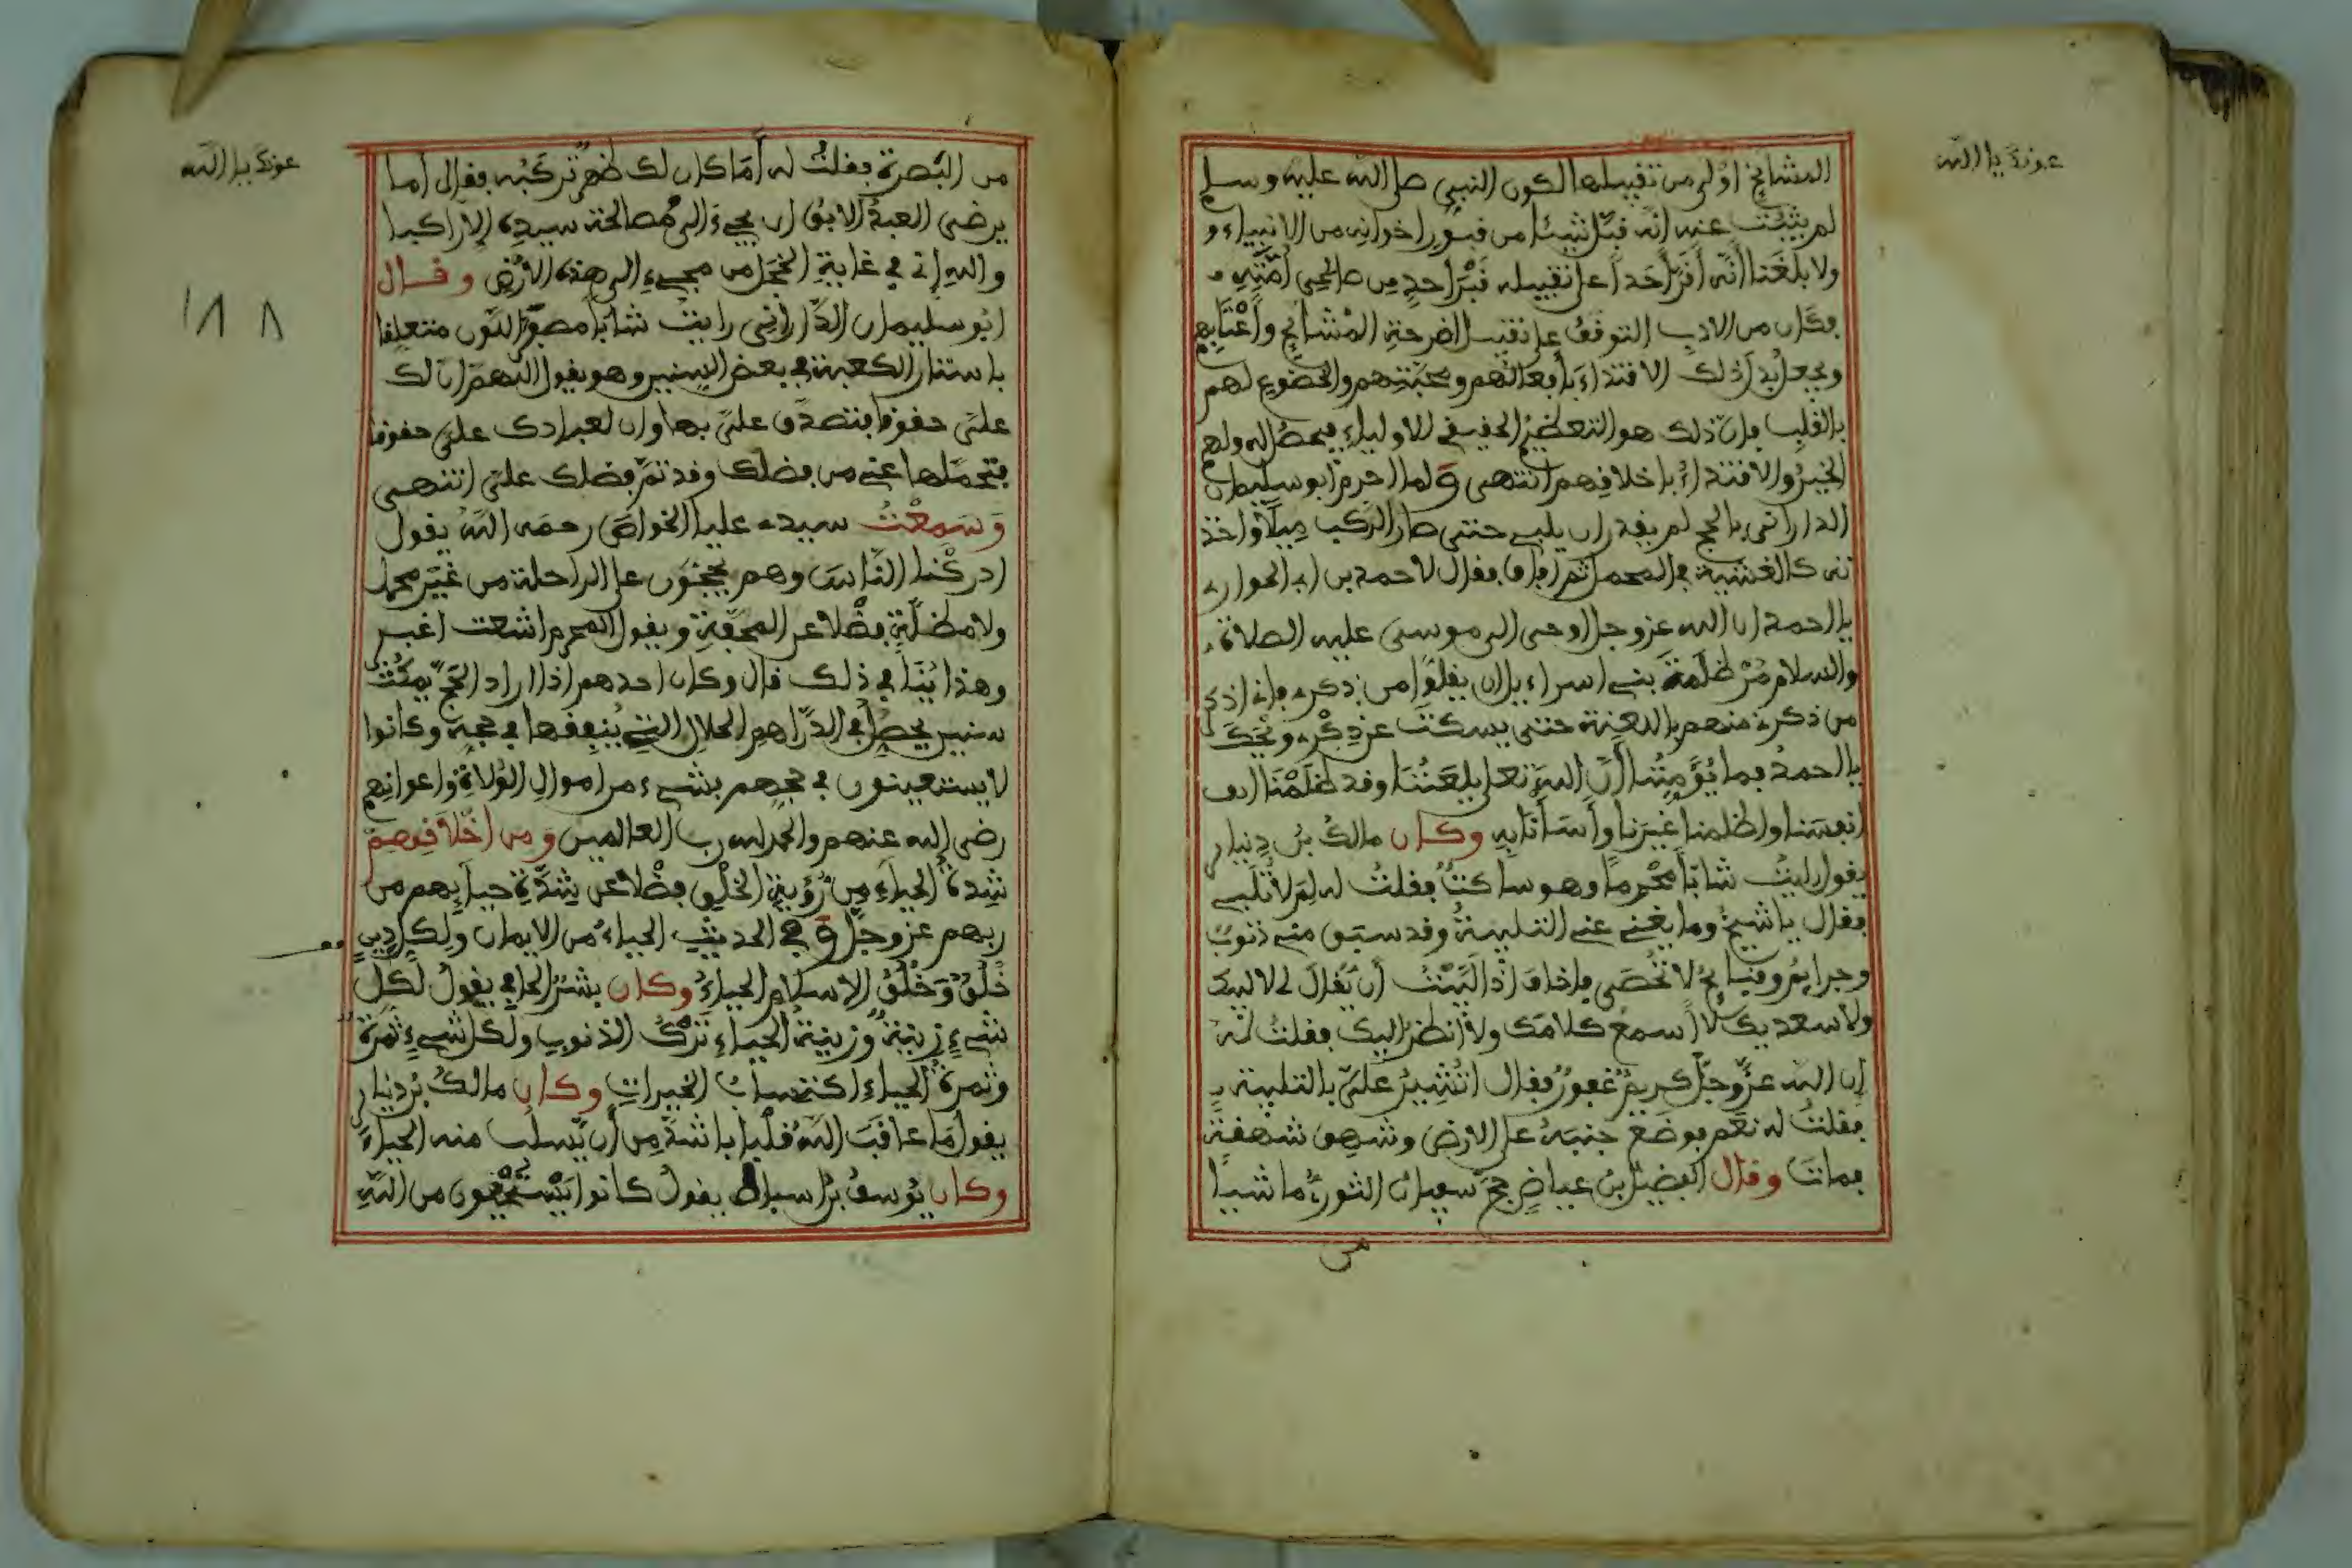 عونك يا الله
المشايخ اولى من تقبيلها لكون النبي صلى الله عليه وسلم
لم يثبت عنه انه قبل شيئا من قبور اخوانه من الانبياء و
ولا بلغنا انه اقر احدا على تقبيله قبر احد من صالحي امته
فكان من الادب التوقف على تقبيل اضرحة المشايخ واعتابهم
ويجعل بدل ذلك الاقتداء بافعالهم ومحبتهم والخضوع لهم
بالقلب فان ذلك هو التعظيم الحقيقي للاولياء فيحصل له ولهم
الخير والاقتداء باخلاقهم انتهى ولما احرم ابو سليمان
الداراني بالحج لم يقدر ان يلبي حتى صار الركب ميلا واخذ
ته كالغشية في المحمل ثم افاق فقال لاحمد بن ابي الحواري
يا احمد ان الله عز وجل اوحى الى موسى عليه الصلاة
والسلام مر ظلمة بني اسراءيل ان يقلوا من ذكري فاني اذكر
من ذكرني منهم باللعنة حتى يسكت عن ذكري ويحك
يا احمد فما يؤمننا ان الله تعالى يلعننا وقد ظلمنا
انفسنا وظلمنا غيرنا واسانا به وكان مالك بن دينار
يقول رايت شابا محرما وهو ساكت فقلت له لم لا تلبي
فقال يا شيخ وما يغني عني التلبية وقد سبق مني ذنوب
وجرايم وقبايح لا تحصى فاخاف اذا لبيت ان يقال لي لا لبيك
ولا سعديك لا اسمع كلامك ولا انظر اليك فقلت له
ان الله عز وجل كريم غفور فقال اتشير علي بالتلبية
فقلت له نعم فوضع جنبه على الارض وشهق شهقة
فمات وقال الفضيل بن عياض حج سفيان الثوري ماشيا
من
عونك يا الله
١٨٨
من البصرة فقلت له اما كان لك ظهر تركبه فقال اما
يرضى العبد الابق ان يجيء الى مصالحة سيده الا راكبا
والله اني في غاية الخجل من مجيءي الى هذه الارض وقال
ابو سليمان الداراني رايت شابا مصفر اللون متعلقا
باستار الكعبة في بعض السنين وهو يقول اللهم ان لك
علي حقوقا فتصدق علي بها وان لعبادك علي حقوقا
فتحملها عني من فضلك وقد تم فضلك علي انتهى
وسمعت سيدي عليا الخواص رحمه الله يقول
ادركنا الناس وهم يحجون على الراحلة من غير محمل
ولا مظلة فضلا عن المحفة ويقول المحرم اشعت اغبر
وهذا ينافي ذلك قال وكان احدهم اذا اراد الحج يمكث
سنين يحصل في الدراهم الحلال التي ينفقها في حجه وكانوا
لا يستعينون في حجهم بشيء من اموال الولاة واعوانهم
رضي الله عنهم والحمد لله رب العالمين ومن اخلاقهم
شدة الحياء من رؤية الخلق فضلا عن شدة حيايهم من
ربهم عز وجل وفي الحديث الحياء من الايمان ولكل دين
خلق وخلق الاسلام الحياء وكان بشر الحافي يقول لكل
شيء زينة وزينة الحياء ترك الذنوب ولكل شيء ثمرة
وثمرة الحياء اكتساب الخيرات وكان مالك بن دينار
يقول ما عاقب الله قلبا باشد من ان يسلب منه الحياء
وكان يوسف بن اسباط يقول كانوا يستحيون من الله